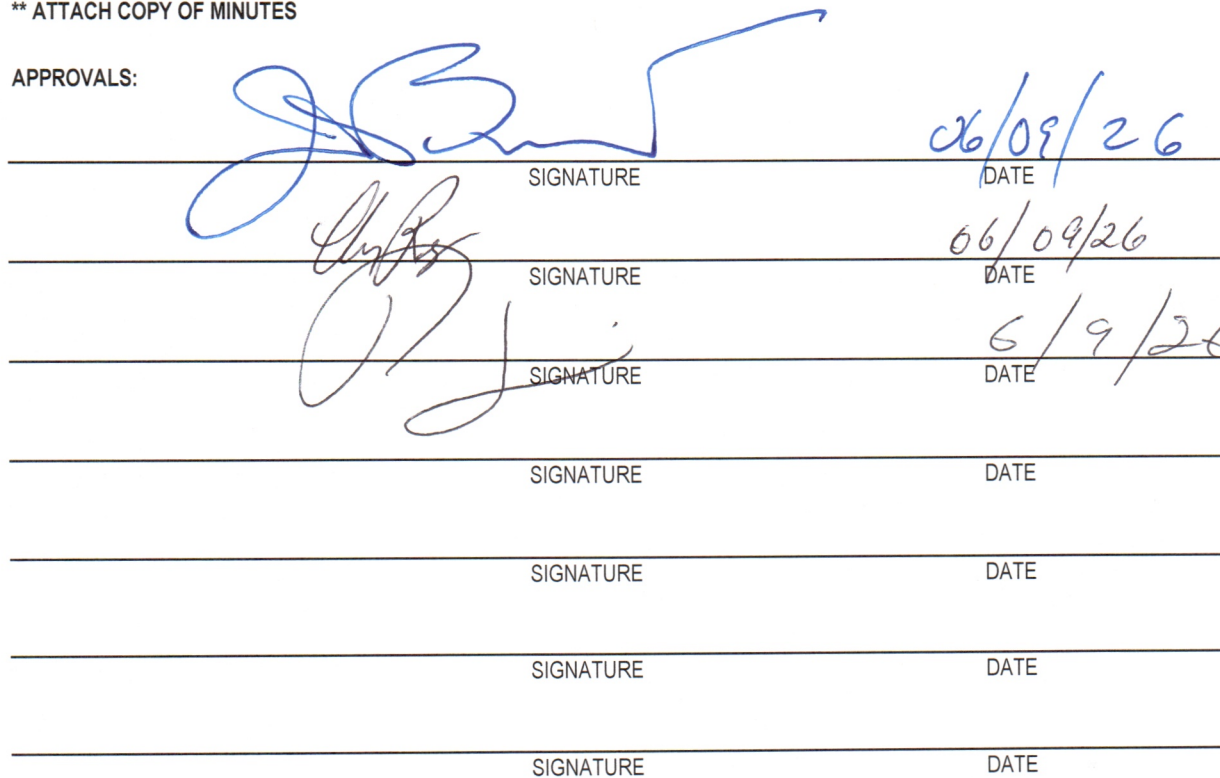 ** ATTACH COPY OF MINUTES
APPROVALS:
06/09/26
SIGNATURE DATE
06/09/26
SIGNATURE DATE
6/9/26
SIGNATURE DATE
SIGNATURE DATE
SIGNATURE DATE
SIGNATURE DATE
SIGNATURE DATE